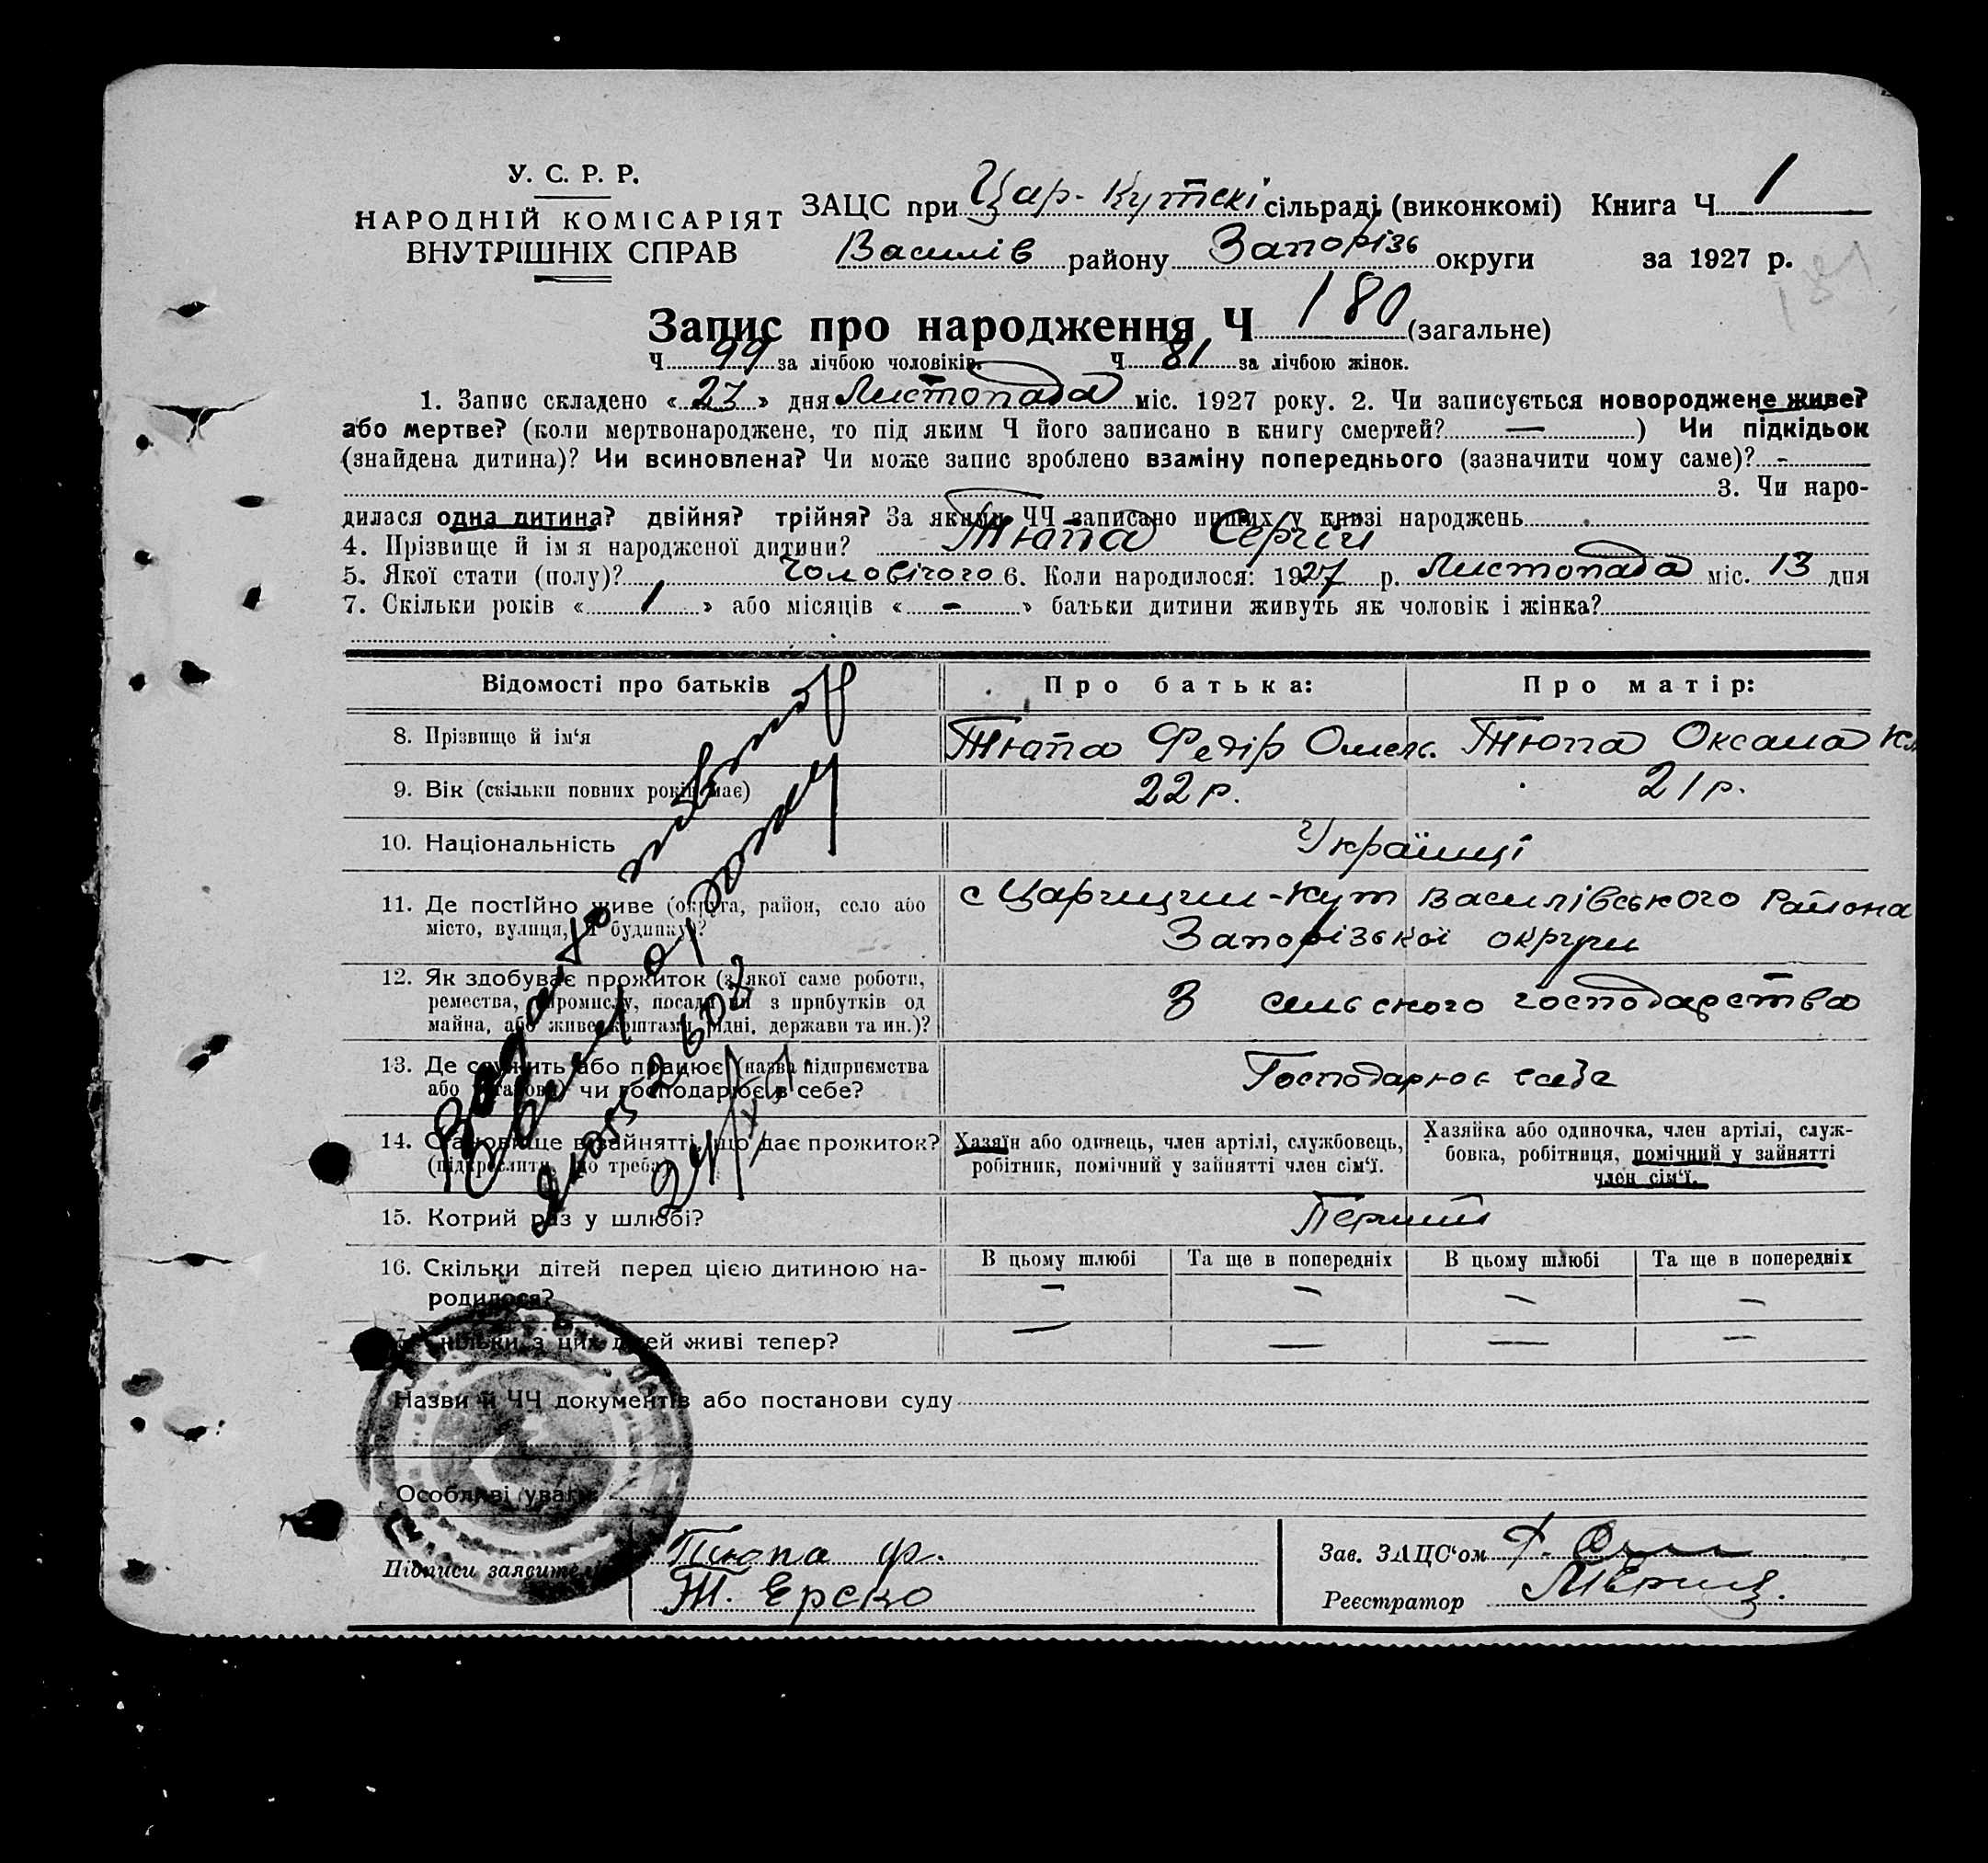 У. С. Р. Р.
НАРОДНІЙ КОМІСАРІЯТ
ВНУТРІШНІХ СПРАВ
ЗАЦС при Цар-Кутскі сільраді (виконкомі) Книга Ч 1
Василів району Запорізь округи за 1927 р.
Запис про народження Ч 180 (загальне)
Ч 99 за лічбою чоловіків. Ч 81 за лічбою жінок.
1. Запис складено « 23 » дня Листопада міс. 1927 року. 2. Чи записується новороджене живе?
або мертве? (коли мертвонароджене, то під яким Ч його записано в книгу смертей? — ) Чи підкідьок
(знайдена дитина)? Чи всиновлена? Чи може запис зроблено взаміну попереднього (зазначити чому саме)? -
3. Чи наро-
дилася одна дитина? двійня? трійня? За якими ЧЧ записано инших у книзі народжень
4. Прізвище й ім'я народженої дитини? Тюпа Сергій
5. Якої стати (полу)? Чоловічого 6. Коли народилося: 1927 р. Листопада міс. 13 дня
7. Скільки років « 1 » або місяців « - » батьки дитини живуть як чоловік і жінка?
Відомості про батьків Про батька: Про матір:
8. Прізвище й ім'я Тюпа Федір Омелк. Тюпа Оксана
9. Вік (скільки повних років має) 22 р. 21 р.
10. Національність Українці
11. Де постІйно живе (округа, район, село або
місто, вулиця, Ч будинку)?
с Царицин-Кут Василівського Района
Запорізької округи
12. Як здобуває прожиток (з якої саме роботи,
ремества, промислу, посади чи з прибутків од
майна, або живе коштами рідні, держави та ин.)?
З сельского господарства
13. Де служить або працює (назва підприємства
або установи) чи господарює в себе?
Господарює
14. Становище в зайнятті, що дає прожиток?
(підкреслити, що треба)
Хазяїн або одинець, член артілі, службовець,
робітник, помічний у зайнятті член сім'ї.
Хазяйка або одиночка, член артілі, служ-
бовка, робітниця, помічний у зайнятті
член сім'ї.
15. Котрий раз у шлюбі? Перший
16. Скільки дітей перед цією дитиною на-
родилося?
В цьому шлюбі Та ще в попередніх В цьому шлюбі Та ще в попередніх
— — — —
17. Скільки з цих дітей живі тепер? — — — —
Назви й ЧЧ документів або постанови суду
Особливі уваги
Підписи заявителів Тюпа Ф.
Зав. ЗАЦС'ом
Реєстратор